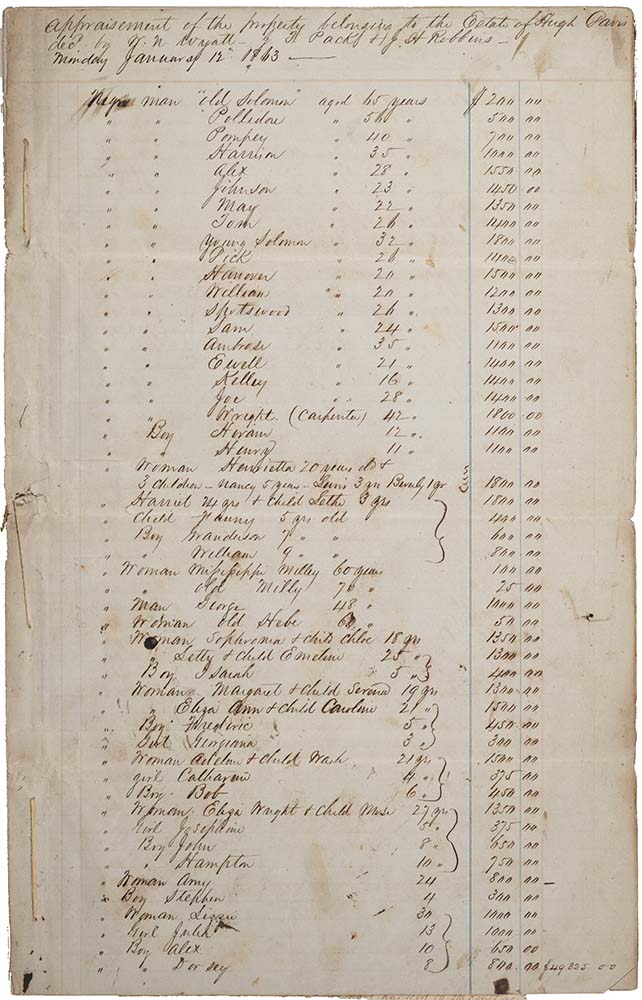 appraisement of the property belonging to the Estate of Hugh Davis
decd. by W. N Wyatt - T Packs & J. H Robbins -
Monday January 12th 1863 —
Negro man "old Solomon" aged 65 years $ 200 00
" " Pollidore " 56 " 500 00
" " Pompey " 40 " 700 00
" " Harrison " 35 " 1000 00
" " Alex " 28 " 1550 00
" " Johnson " 23 " 1450 00
" " May " 22 " 1350 00
" " Tom " 26 " 1400 00
" " Young Solomon " 32 " 1800 00
" " Pick " 26 " 1400 00
" " Hanover " 20 " 1500 00
" " William " 20 " 1200 00
" " Spotswood " 26 " 1300 00
" " Sam " 24 " 1500 00
" " Ambrose " 35 " 1100 00
" " Ewell " 21 " 1400 00
" " Kelley " 16 " 1400 00
" " Joe " 28 " 1400 00
" " Wright (Carpenter) 42 " 1800 00
" Boy Hiram 12 " 1100 00
" " Henry 11 " 1100 00
" Woman Henrietta 20 years old &
3 Children - Nancy 5 years - 3 yrs Beverly 1 yr 1800 00
" Harriet 24 yrs & child Lethe 3 yrs 1800 00
" Child Fanny 5 yrs old 400 00
" Boy Wanderson 7 " " 600 00
" " William 9 " " 800 00
" Woman Missippi Milley 60 years 100 00
" " old Milly 70 " 25 00
" Man George 48 " 1000 00
" Woman old Hebe " 50 00
" Woman Sophronia & child Chloe 18 yrs 1350 00
" " Letty & Child Emeline 25 " 1300 00
" Boy Isarah 5 " 400 00
" Woman - Margaret & Child Serena 19 yrs 1300 00
" " Eliza Ann & Child Caroline 21 " 1500 00
" Boy Frederic 5 " 450 00
" Girl Georgiana 3 " 300 00
" Woman Adeline & Child Wash 21 yrs 1500 00
" girl Catharine 4 " 375 00
" Boy - Bob 6 " 450 00
" Woman Eliza Wright & Child Mose 27 yrs 1350 00
" Girl Josephine 5 " 375 00
" Boy John 8 " 650 00
" " Hampton 10 " 750 00
" Woman Amy 24 800 00 -
" Boy Stephen 4 300 00
" Woman Lizzie 30 1000 00
" Girl Julia 13 1000 00
" Boy Alex 10 650 00
" " Dorsey 8 800 00 $49825 00